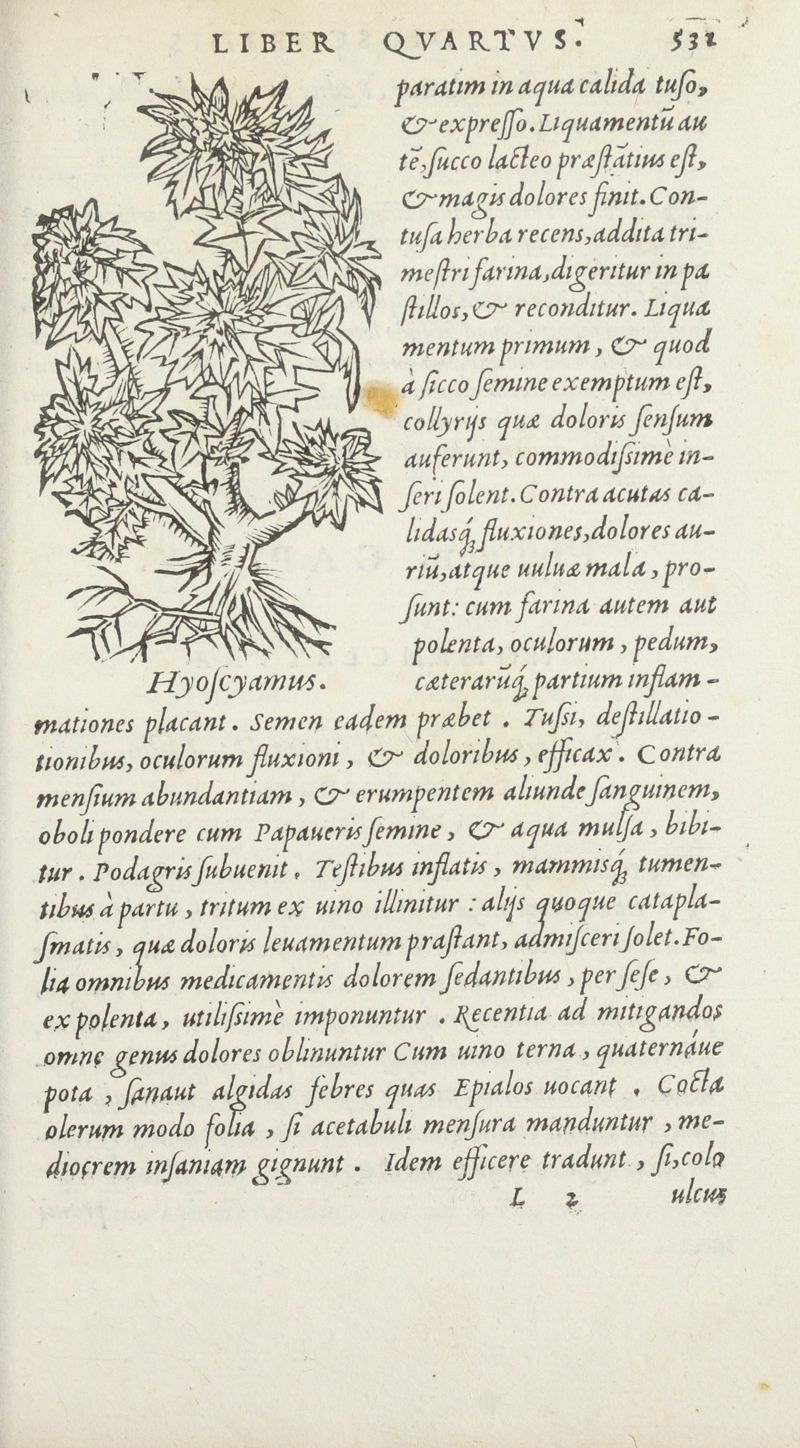 LIBER QVARTVS. 531
paratim in aqua calida tuſo,
& expreſſo. Liquamentū au
tē, ſucco lacteo præſtātius eſt,
& magis dolores finit. Con-
tuſa herba recens, addita tri-
meſtri farina, digeritur in pa
ſtillos, & reconditur. Liqua
mentum primum, & quod
à ſicco ſemine exemptum eſt,
collyrijs quæ doloris ſenſum
auferunt, commodiſsimè in-
ſeri ſolent. Contra acutas ca-
lidasq́; fluxiones, dolores au-
riū, atque uuluæ mala, pro-
ſunt: cum farina autem aut
polenta, oculorum, pedum,
Hyoſcyamus.
cæterarūq́; partium inflam-
mationes placant. Semen eadem præbet. Tuſsi, deſtillatio-
tionibus, oculorum fluxioni, & doloribus, efficax. Contra
menſium abundantiam, & erumpentem aliunde ſanguinem,
oboli pondere cum Papaueris ſemine, & aqua mulſa, bibi-
tur. Podagris ſubuenit, Teſtibus inflatis, mammisq́; tumen-
tibus à partu, tritum ex uino illinitur: alijs quoque catapla-
ſmatis, quæ doloris leuamentum præſtant, admiſceri ſolet. Fo-
lia omnibus medicamentis dolorem ſedantibus, per ſeſe, &
ex polenta, utiliſsimè imponuntur. Recentia ad mitigandos
omne genus dolores oblinuntur Cum uino terna, quaternáue
pota, ſanaut algidas febres quas Epialos uocant, Cocta
olerum modo folia, ſi acetabuli menſura manduntur, me-
diocrem inſaniam gignunt. Idem efficere tradunt, ſi, colo
L 2 ulcus